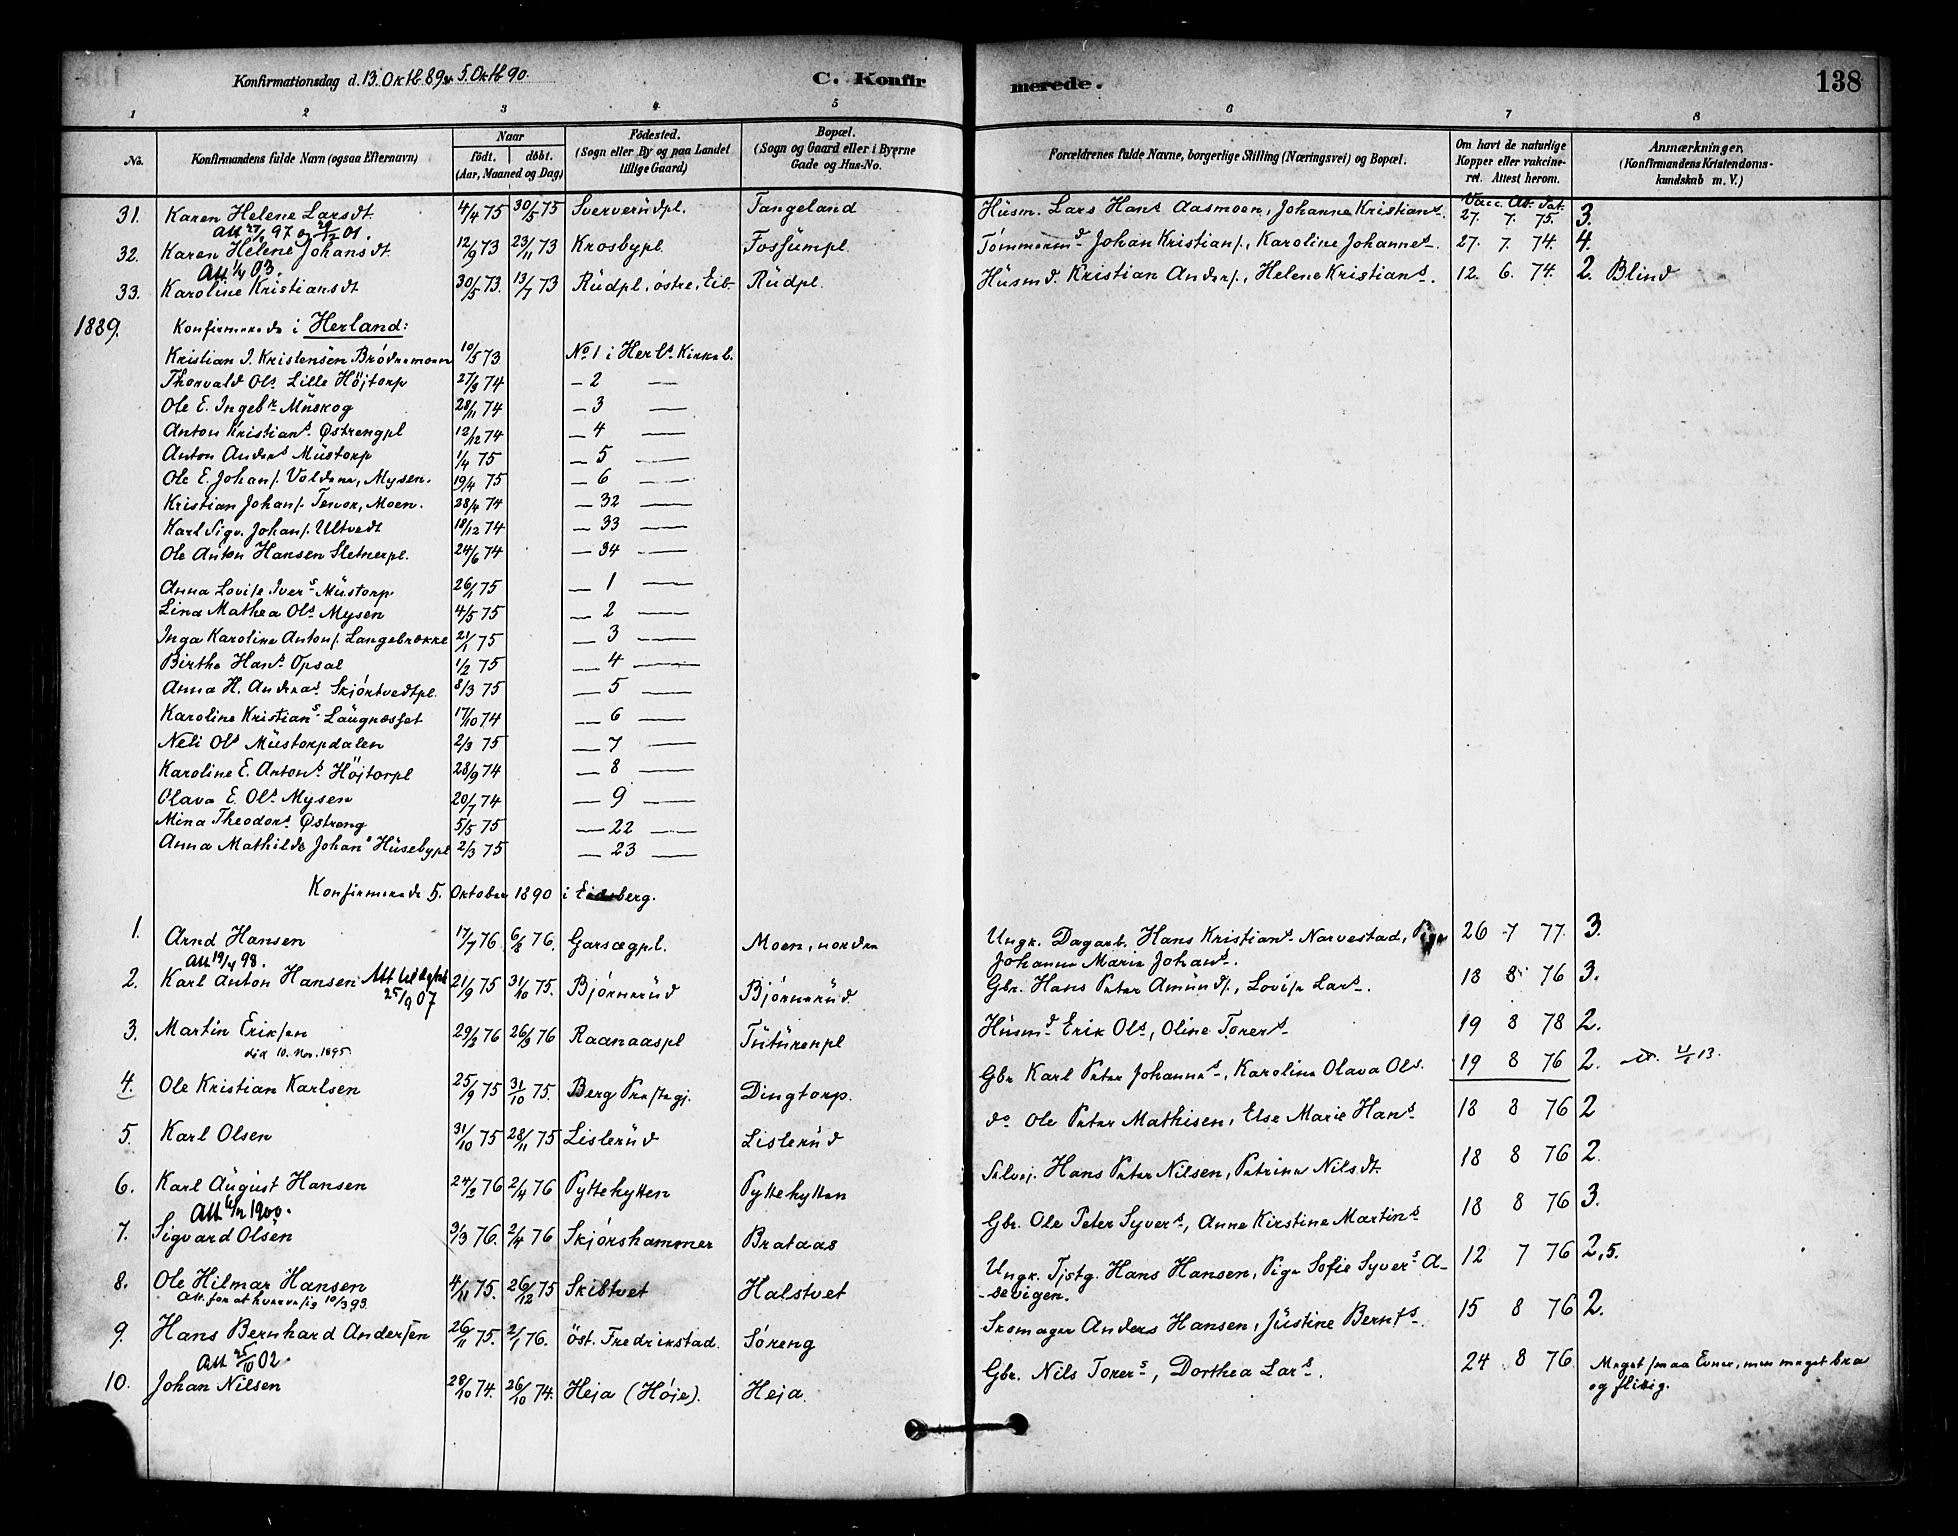 Konfirmationsdag d. 13. Oktb. 89 & 5. Oktb 90
C. Konfirmerede.
138
1 2 3 4 5 6 7 8
No.
Konfirmandens fulde Navn (ogsaa Efternavn)
Naar
födt. döbt.
(Aar, Maaned og Dag)
Födested.
(Sogn eller By og paa Landet
tillige Gaard)
Bopæl.
(Sogn og Gaard eller i Byerne
Gade og Hus-No.
Forældrenes fulde Navne, borgerlige Stilling (Næringsvei) og Bopæl.
Om havt de naturlige
Kopper eller vakcine-
ret. Attest herom.
Anmærkninger,
(Konfirmandens Kristendoms-
kundskab m. V.)
Vacc. Att. Dat.
31. Karen Helene Larsdt. 4/4 75 30/5 75 Sververüdpl. Tangeland Hüsm. Lars Hans Aasmoen, Johanne Kristians. 27. 7. 75. 3.
32. Karen Helene Johansdt. 12/9 73 23/11 73 Krosbypl. Fossümpl. Tómmermd. Johan Kristians., Karoline Johannes. 27. 7. 74. 4.
Att 1/4 03.
33. Karoline Kristiansdt 30/5 73. 13/7 73 Rüdpl, østre, Eib. Rüdpl. Hüsmd. Kristian Anders., Helene Kristians. 12. 6. 74. 2. Blind
1889. Konfirmerede i Herland:
Kristian J. Kristensen Brødremoen 10/5 73 No 1 i Herls. Kirkeb.
Thorvald Ols. Lille Höjtorp 27/3 74 — 2 —
Ole E. Ingebr. Müskog 28/11 74 — 3 —
Anton Kristians. Østrengpl 12/12 74 — 4 —
Anton Anders Müstorp 1/4 75 — 5 —
Ole E. Johans. Voldene, Mysen. 19/4 75 — 6 —
Kristian Johans. Tenor, Moen. 28/4 74 — 32 —
Karl Sigv. Johans. Ultvedt 18/12 74 — 33 —
Ole Anton Hansen Sletnerpl. 24/6 74 — 34 —
Anna Lovise Ivers. Müstorp 26/1 75 — 1 —
Lina Mathea Ols. Mysen 4/5 75 — 2 —
Inga Karoline Antons. Langebrække 21/1 75 — 3 —
Birthe Hans. Opsal 1/2 75 — 4 —
Anna H. Andreas. Skjórtvedtpl. 8/3 75 — 5 —
Karoline Kristians. Laügnæsset 17/10 74 — 6 —
Neli Ols Müstorpdalen 2/3 75 — 7 —
Karoline E. Antons. Höjtorpl 28/9 74 — 8 —
Olava E. Ols. Mysen 20/7 74 — 9 —
Mina Theodors. Østreng 5/5 75 — 22 —
Anna Mathilde Johans Hüsebypl 2/3 75 — 23 —
Konfirmerede 5. Oktober 1890 i Eidsberg.
1. Arnd Hansen 17/7 76 6/8 76. Garsægpl. Moen, nordre Ungk. Dagarb. Hans Kristians. Narvestad, Pige 26 7 77. 3.
Att 19/4 98. Johanne Marie Johans.
2. Karl Anton Hansen 21/9 75 31/10 75. Bjórnerüd Bjórnerüd. Gbr. Hans Peter Amünds., Lovise Lars. 18 8 76 3.
25/9 07
3. Martin Eriksen 29/2 76 26/3 76 Raanaaspl Tütürenpl Hüsmd. Erik Ols, Oline Torers. 19 8 78 2.
död 10. Nov. 1895.
4. Ole Kristian Karlsen 25/9 75 31/10 75. Berg Præstegj. Dingtorp. Gbr Karl Peter Johannes., Karoline Olava Ols. 19 8 76 2.
5. Karl Olsen 31/10 75 28/11 75 Lislerüd Lislerüd do Ole Peter Mathisen, Else Marie Hans 18 8 76 2
6. Karl Aügust Hansen 24/2 76 2/4 76 Pyttehytten Pyttehytten Selvej. Hans Peter Nilsen, Petrine Nilsdt. 18 8 76 2.
7. Sigvard Olsen 3/3 76. 2/4 76 Skjórshammer Brataas Gbr. Ole Peter Syvers., Anne Kirstine Martins 18 8 76 3.
8. Ole Hilmar Hansen 4/11 75. 26/12 75 Skibtvet Halstvet Ungk. Tjstg. Hans Hansen, Pige Sofie Syvers A- 12 7 76 2,5.
Att. for at hverve sig 10/3 93 -sevigen.
9. Hans Bernhard Andersen 26/11 75. 2/1 76. öst. Fredrikstad. Sóreng Skomager Anders Hansen, Jüstine Bernts. 15 8 76 2.
Att 25/10 02.
10. Johan Nilsen 28/10 74. 26/10 74. Heja (Hóje). Heja. Gbr. Nils Torers., Dorthea Lars. 24 8 76 Meget smaa Evner, men meget bra
og flittig.